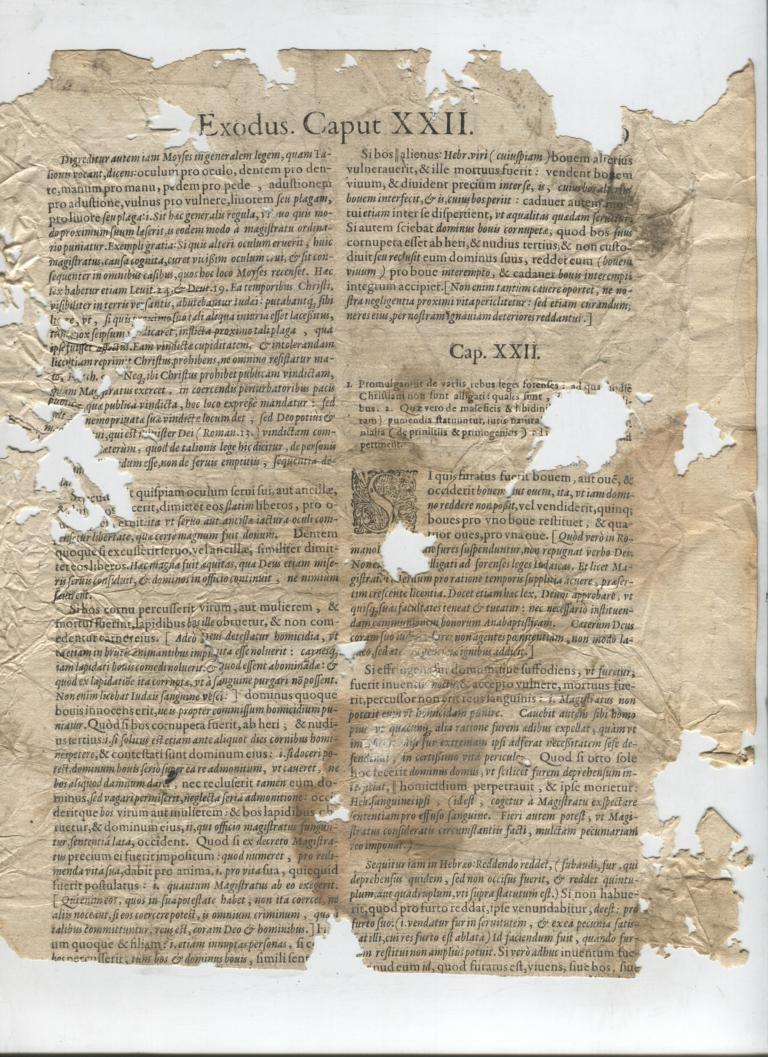 Exodus. Caput XXII.
Digreditur autem iam Moyses in generalem legem, quam Ta-
lionis vocant, dicens: oculum pro oculo, dentem pro den-
te, manum pro manu, pedem pro pede, adustionem
pro adustione, vulnus pro vulnere, liuorem seu plagam,
pro liuore seu plaga: i. Sit hæc generalis regula, vt quo quis mo-
do proximum suum læserit, is eodem modo à magistratu ordina-
rio puniatur. Exempli gratia: Si quis alteri oculum eruerit, huic
magistratus, causa cognita, curet vicißim oculum
sequenter in omnibus casibus, quos hoc loco Moyses recenset. Hæc
lex habetur etiam Leuit. 24. & Deut. 19. Ea temporibus Christi,
visibiliter in terris versantis, abutebantur Iudæi: putabantq́, sibi
vt, si quis proximus suo tali aliqua iniuria esset lacesitus,
inflicta proximo tali plaga, qua
ipse fuisset Eam vindictæ cupiditatem, & intolerandam
licentiam reprimit Christus, prohibens, ne omnino resistatur ma-
Neq́, ibi Christus prohibet publicam vindictam,
quam Magistratus exercet, in coercendis perturbatoribus pacis
publicæ: quæ publica vindicta, hoc loco expresse mandatur: sed
neimo priuatæ suæ vindictæ locum det, sed Deo potius &
qui est minister Dei (Roman. 13.) vindictam com-
quod de talionis lege hic dicitur, de personis
esse, non de seruis emptitiis, sequentia de-
quispiam oculum serui sui, aut ancillæ,
dimittet eos statim liberos, pro o-
eruit: ita vt seruo aut ancillæ iactura oculi com-
pensetur libertate, quæ certè magnum fuit donum. Dentem
quoque si excusserit seruo, vel ancillæ, similiter dimit-
tet eos liberos. Hæc magna fuit æquitas, qua Deus etiam mise-
ris seruis consuluit, & dominos in officio continuit, ne nimium
sæuirent.
Si bos cornu percusserit virum, aut mulierem, &
mortui fuerint, lapidibus bos ille obruetur, & non com-
edentur carnes eius. [ Adeò Deus detestatur homicidia, vt
ea etiam in brutis animantibus impunita esse noluerit: carnesq́,
iam lapidati bouis comedi noluerit: & quod essent abominandæ: &
quod ex lapidatione ita corruptæ, vt à sanguine purgari nō possent.
Non enim licebat Iudæis sanguine vesci.] dominus quoque
bouis innocens erit, ne is propter commissum homicidium pu-
niatur. Quòd si bos cornupeta fuerit, ab heri, & nudi-
us tertius: i. si solitus est etiam ante aliquot dies cornibus homi-
nes petere, & contestati sunt dominum eius: i. si doceri po-
test, dominum bouis seriò super ea re admonitum, vt caueret, ne
bos aliquod damnum daret, nec recluserit tamen eum do-
minus, sed vagari permiserit, neglecta seria admonitione: occi-
deritque bos virum aut mulierem: & bos lapidibus
obruetur, & dominum eius, ii, qui officio magistratus fungun-
tur, sententia lata, occident. Quòd si ex decreto Magistra-
tus precium ei fuerit impositum: quod numeret, pro redi-
menda vita sua, dabit pro anima, i. pro vita sua, quicquid
fuerit postulatus: i. quantum Magistratus ab eo exegerit.
[Qui enim eos, quos in sua potestate habet, non ita coercet, ne
aliis noceant, si eos coercere potest, is omnium criminum, quæ
talibus committuntur, reus est, coram Deo & hominibus.]
um quoque & filiam: i. etiam innuptas personas, si
bos percusserit, tum bos & dominus bouis, simili sent
Si bos alienus: Hebr. viri (cuiuspiam) bouem alterius
vulnerauerit, & ille mortuus fuerit: vendent bouem
viuum, & diuident precium inter se, is, cuius bos alterius
bouem interfecit, & is, cuius bos periit: cadauer autem mor-
tui etiam inter se dispertient, vt æqualitas quædam seruetur.
Si autem sciebat dominus bouis cornupetæ, quòd bos suus
cornupeta esset ab heri, & nudius tertius, & non custo-
diuit seu reclusit eum dominus suus, reddet eum (bouem
viuum) pro boue interempto, & cadauer bouis interempti
integrum accipiet. [Non enim tantum cauere oportet, ne no-
stra negligentia proximi vita periclitetur: sed etiam curandum,
ne res eius, per nostram ignauiam deteriores reddantur.]
Cap. XXII.
1. Promulgantur de variis rebus leges forenses: ad quas hodie
Christiani non sunt alligati: quales sunt,
bus. 2. Quæ vero de maleficis & libidin
ram) puniendis statuuntur, iuris natura
nialia (de primitiis & primogenitis)
pertinent.
SI quis furatus fuerit bouem, aut ouē, &
occiderit bouem aut ouem, ita, vt iam domi-
no reddere non posit, vel vendiderit, quinq;
boues pro vno boue restituet, & qua-
tuor oues, pro vna oue. [Quòd verò in Ro-
mano fures suspenduntur, non repugnat verbo Dei.
Non alligati ad forenses leges Iudaicas. Et licet Ma-
gistratui interdum pro ratione temporis supplicia acuere, præser-
tim crescente licentia. Docet etiam hæc lex, Deum approbare, vt
quisq́, suas facultates teneat & tueatur: nec necessariò instituen-
dam communionem bonorum Anabaptisticam. Cæterùm Deus
coram suo iudicio fure non agentes pœnitentiam, non modò la-
queo, sed æternis ignibus addicit.]
Si effringens fur domum siue suffodiens, vt furetur,
fuerit inuentus noctu, & accepto vulnere, mortuus fue-
rit, percussor non erit reus sanguinis: i. Magistratus non
poterit eum vt homicidam punire. Cauebit autem sibi homo
pius vt quacunq́, alia ratione furem adibus expellat, quàm vt
im fur extremam ipsi adferat necessitatem sese de-
fendendi, in certissimo vitæ periculo. Quòd si orto sole
hoc fecerit dominus domus, vt scilicet furem deprehensum in-
terficiat, homicidium perpetrauit, & ipse morietur.
Heb. sanguine ipsi (idest, cogetur à Magistratu exspectare
sententiam pro effuso sanguine. Fieri autem potest, vt Magi-
stratus consideratis circumstantiis facti, mulctam pecuniariam
eo imponat.)
Sequitur iam in Hebræo: Reddendo reddet, (subaudi, fur, qui
deprehensus quidem, sed non occisus fuerit, & reddet quintu-
plum, aut quadruplum, vti supra statutum est.) Si non habue-
rit, quod pro furto reddat, ipse venundabitur, deest: pro
furto suo: (i. vendatur fur in seruitutem, & ex ea pecunia satis-
fiat illi, cui res furto est ablata) Id faciendum fuit, quando fur-
tum restitui non ampliùs potuit. Si verò adhuc inuentum fue-
apud eum id, quod furatus est, viuens, siue bos, siue